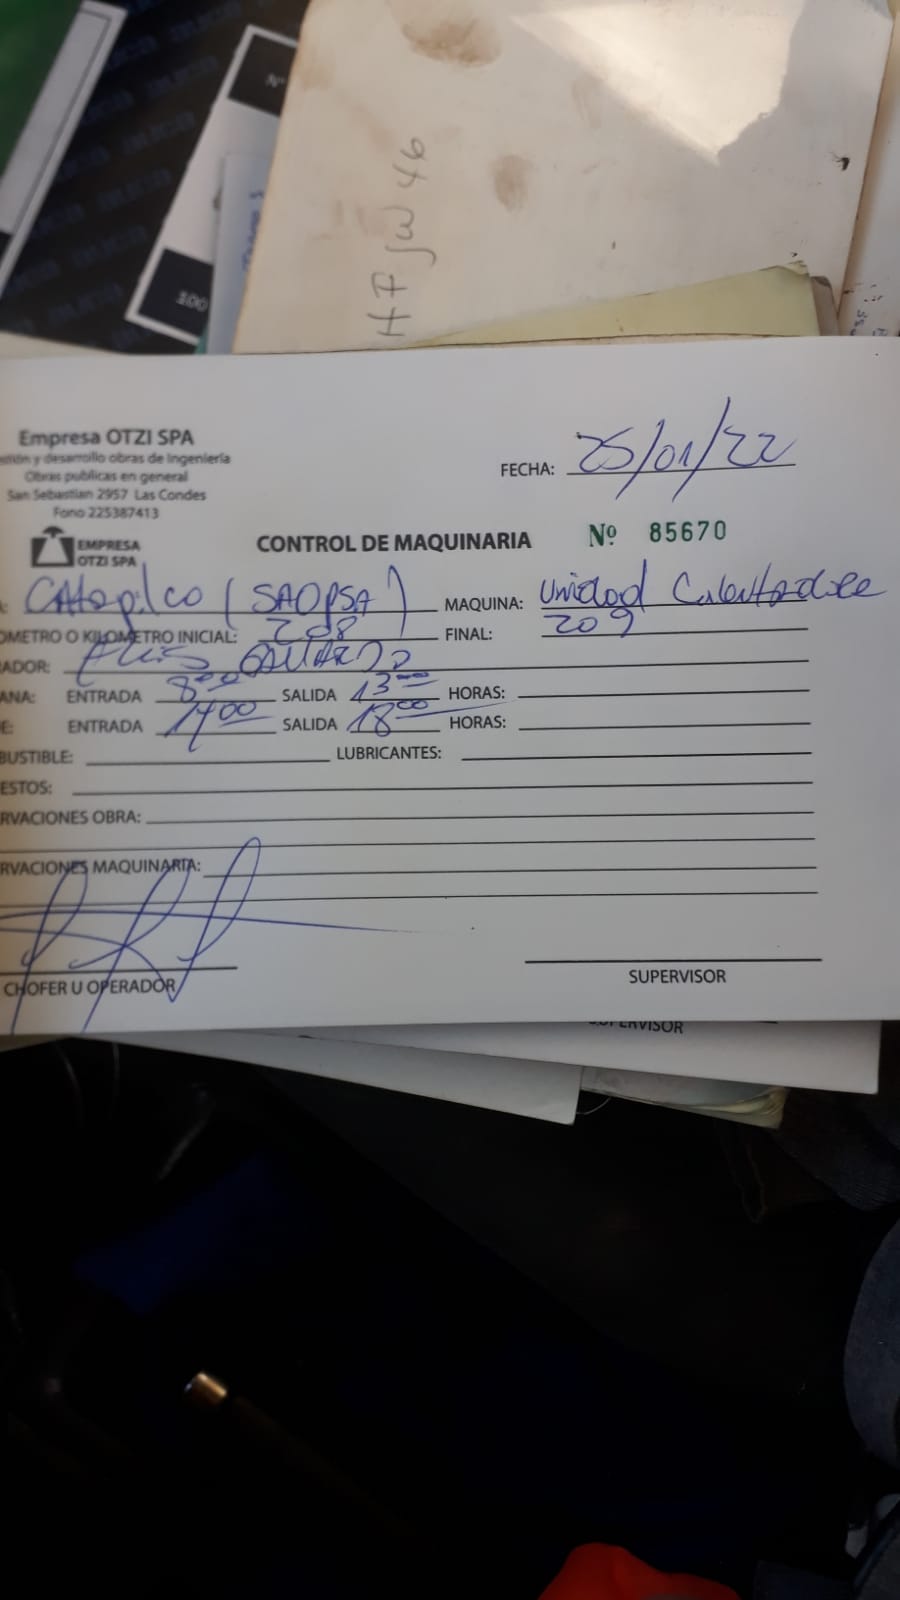 Nº
100
HFJW46
Empresa OTZI SPA
stión y desarrollo obras de Ingeniería
Obras publicas en general
San Sebastian 2957 Las Condes
Fono 225387413
EMPRESA
OTZI SPA
FECHA: 25/01/22
CONTROL DE MAQUINARIA Nº 85670
A: CAtapilco (SAOPSA) MAQUINA: Unidad Calentadora
OMETRO O KILOMETRO INICIAL: 208 FINAL: 209
ADOR: GALLARDO
ANA: ENTRADA 8:00 SALIDA 13:00 HORAS:
E: ENTRADA 14:00 SALIDA 18:00 HORAS:
BUSTIBLE: LUBRICANTES:
ESTOS:
RVACIONES OBRA:
RVACIONES MAQUINARIA:
CHOFER U OPERADOR SUPERVISOR
SUPERVISOR